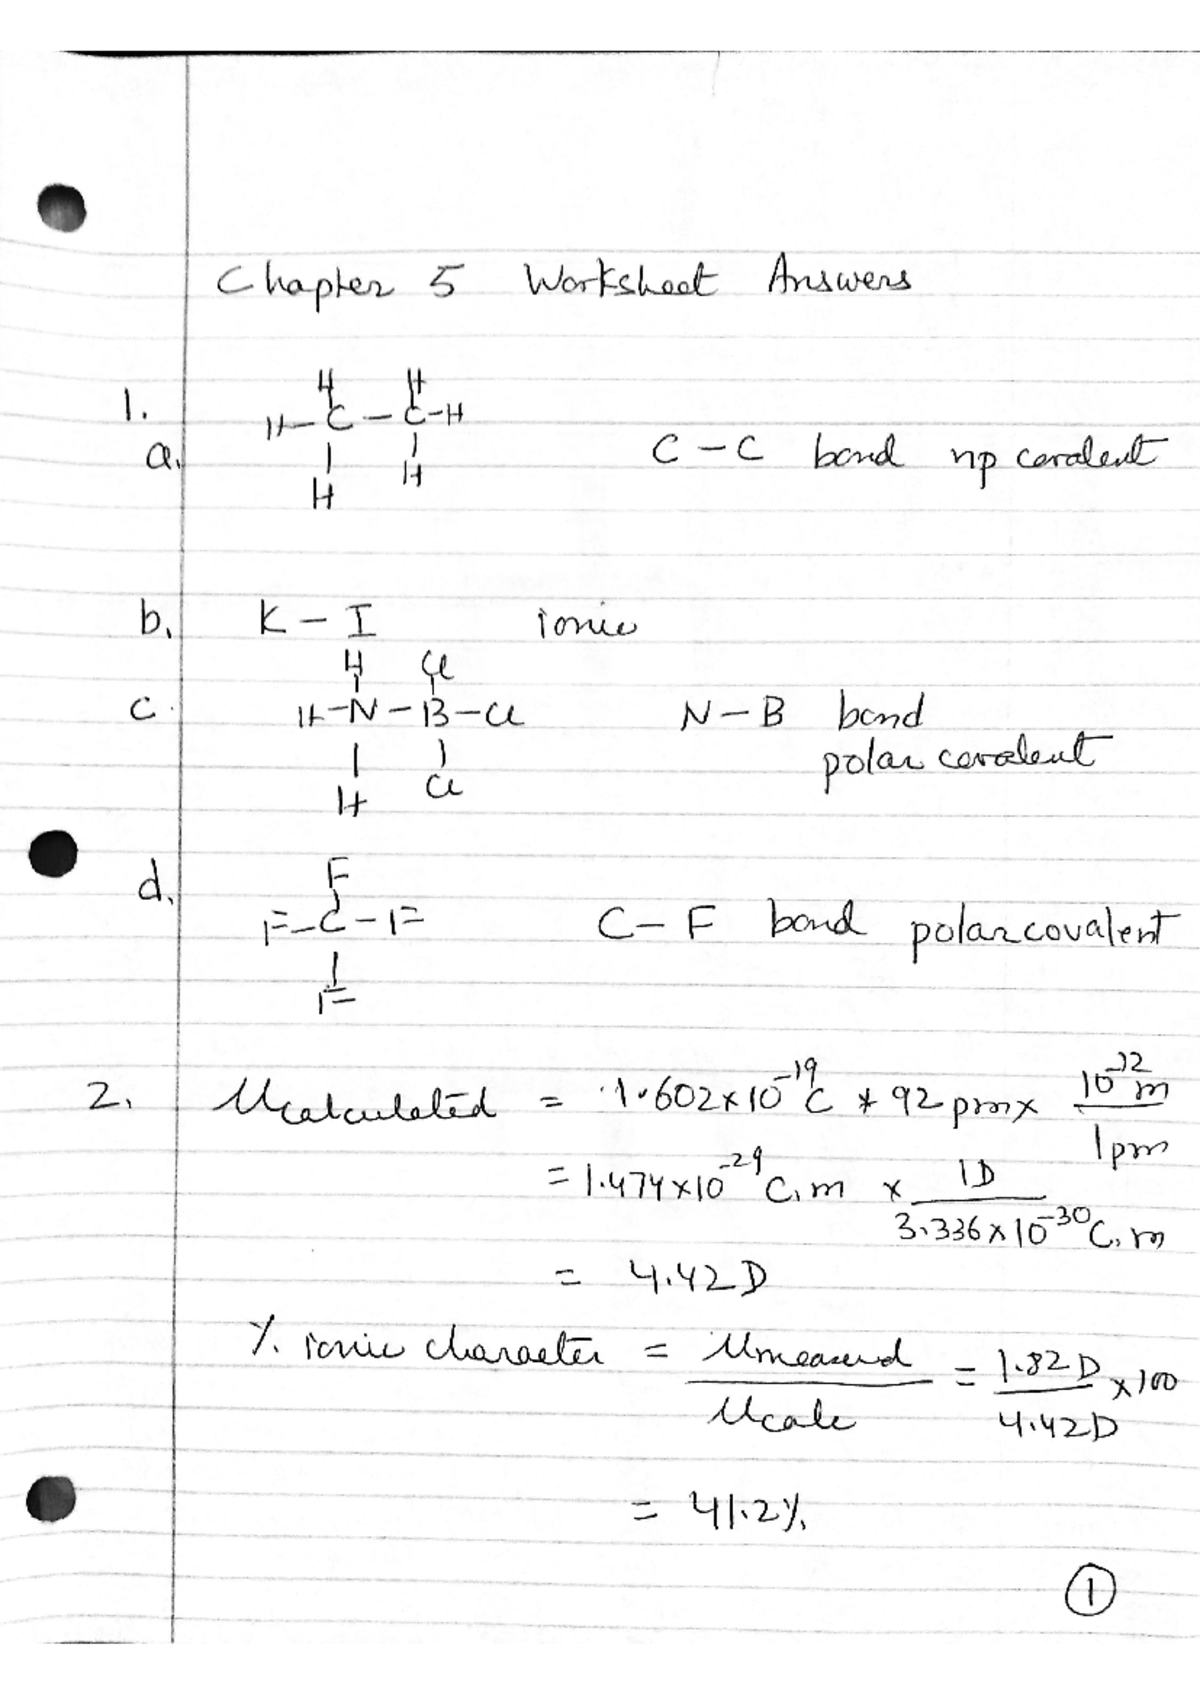 Chapter 5 Worksheet Answers
1.
H H
H-C-C-H
a. C-C bond np covalent
H H
b. K-I ionic
H Cl
c. H-N-B-Cl N-B bond
polar covalent
H Cl
d. F
F-C-F C-F bond polar covalent
F
2. μcalculated = 1.602x10^-19 C * 92 pm x 10^-12 m / 1pm
= 1.474x10^-29 C.m x 1D / 3.336x10^-30 C.m
= 4.42D
% ionic character = μmeasured / μcalc = 1.82D / 4.42D x100
= 41.2%
1